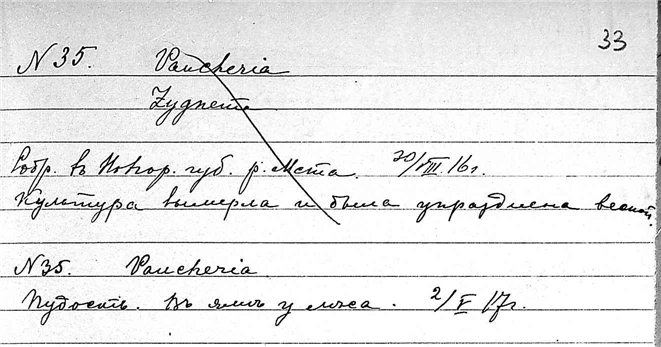 33
N 35. Vaucheria
Zygnema
Собр. въ Новгор. губ. р. Мста. 20/VIII.16 г.
Культура вымерла и была упразднена весной.
N 35. Vaucheria
Пудость. Въ ямѣ у лѣса. 2/V 17 г.